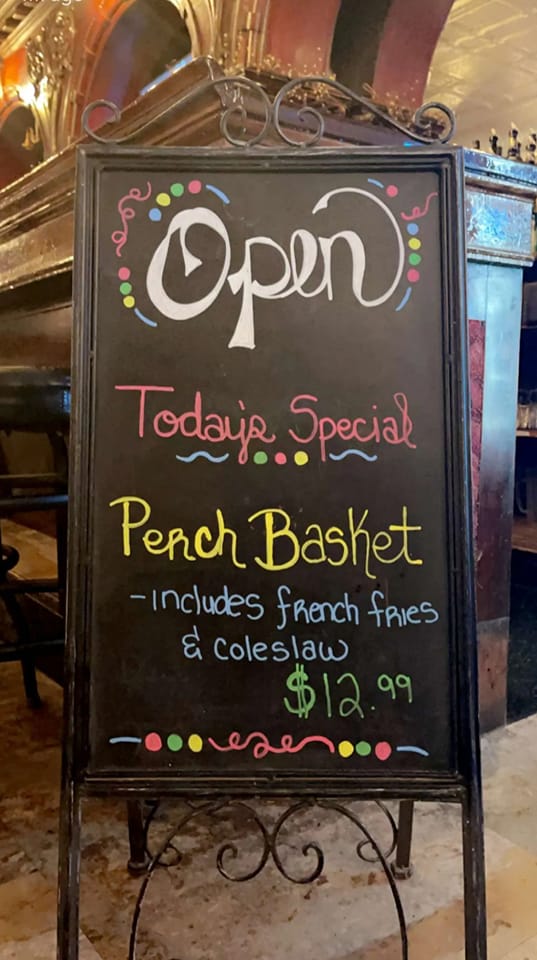 Open
Today's Special
Perch Basket
-includes french fries
& coleslaw
$12.99